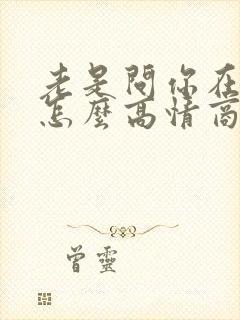 老是問你在
怎麼高情商
曾靈